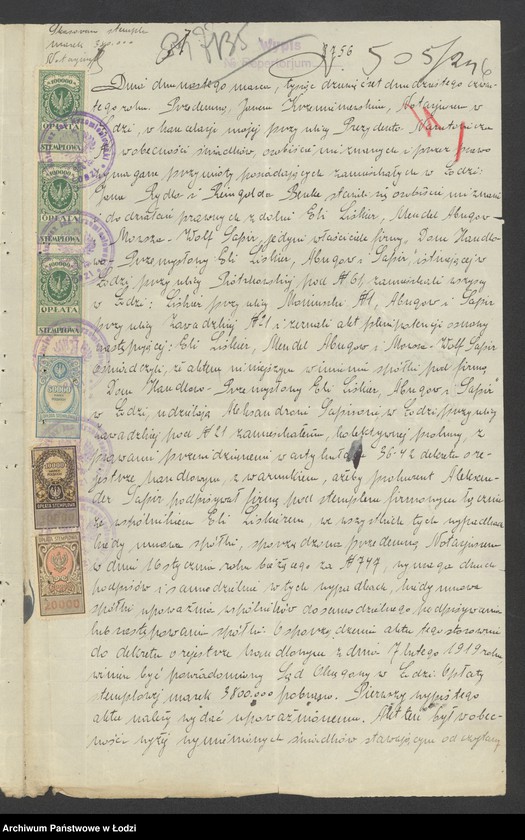 Wypis
№ Repertorjum
505/24
100000
OPŁATA
STEMPLOWA
100000
OPŁATA
STEMPLOWA
100000
OPŁATA
STEMPLOWA
50000
OPŁATA STEMPLOWA
OPŁATA STEMPLOWA
20000
Dnia dwunastego marca, tysiąc dziewięćset dwudziestego czwar-
tego roku. Przedemną, Janem Krzemieniewskim, Notarjuszem w
Łodzi, w kancelarji mojej przy ulicy Prezydenta Narutowicza
w obecności świadków, osobiście mi znanych i przez prawo
wymagane przymioty posiadających zamieszkałych w Łodzi:
Jana Rydla i Reingolda Benke stawili się osobiście mi znani
i do działań prawnych zdolni Eli Liskier, Mendel Abugow
i Morosz-Wolf Sapir, jedyni właściciele firmy, Dom Handlo-
wo-Przemysłowy Eli Liskier, Abugow i Sapir, istniejącej w
Łodzi przy ulicy Piotrkowskiej pod № 61 zamieszkali wszyscy
w Łodzi: Liskier przy ulicy № 1, Abugow i Sapir
przy ulicy Zawadzkiej № 1 i zeznali akt plenipotencji osnowy
następującej: Eli Liskier, Mendel Abugow i Morosz-Wolf Sapir
oświadczyli, że aktem niniejszym w imieniu spółki pod firmą
"Dom Handlowo-Przemysłowy Eli Liskier, Abugow i Sapir"
w Łodzi, udzielają Aleksandrowi Sapirowi w Łodzi przy ulicy
Zawadzkiej pod № 21 zamieszkałemu, kolektywnej prokury, z
prawami przewidzianemi w artykułach 36-42 dekretu o re-
jestrze handlowym, z warunkiem, ażeby prokurent Aleksan-
der Sapir podpisywał firmę pod stemplem firmowym łącznie
ze wspólnikiem Eli Liskierem, we wszystkich tych wypadkach
kiedy umowa spółki, sporządzona przedemną Notarjuszem
w dniu 16 stycznia roku bieżącego za № 774, wymaga dwuch
podpisów i samodzielnie w tych wypadkach, kiedy umowa
spółki upoważnia wspólników do samodzielnego podpisywania
lub zastępowania spółki. O sporządzeniu aktu tego stosownie
do dekretu o rejestrze handlowym z dnia 7 lutego 1919 roku
winien być powiadomiony Sąd Okręgowy w Łodzi. Opłaty
stemplowej marek 3800.000 pobrano. Pierwszy wypis tego
aktu należy wydać upoważnionemu. Akt ten był w obec-
ności wyżej wymienionych świadków stawającym odczytany
Archiwum Państwowe w Łodzi